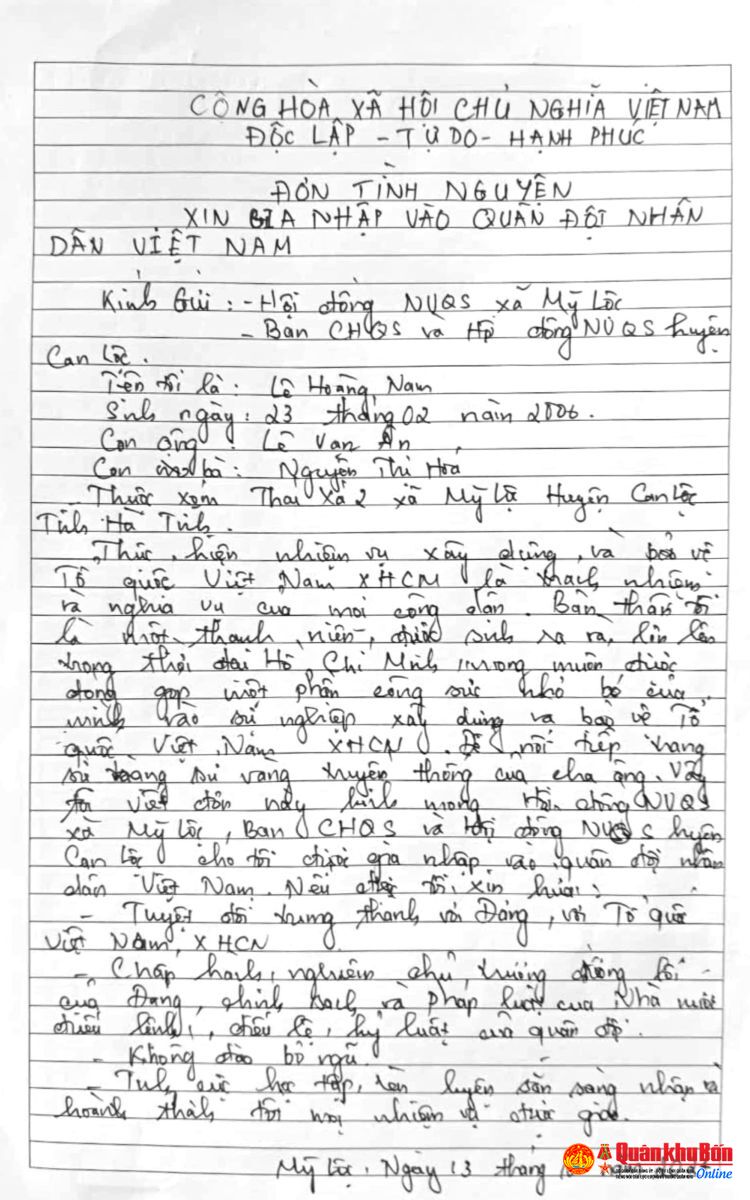 CỘNG HÒA XÃ HỘI CHỦ NGHĨA VIỆT NAM
ĐỘC LẬP - TỰ DO - HẠNH PHÚC
ĐƠN TÌNH NGUYỆN
XIN GIA NHẬP VÀO QUÂN ĐỘI NHÂN
DÂN VIỆT NAM
Kính Gửi : - Hội đồng NVQS xã Mỹ Lộc
- Ban CHQS và Hội đồng NVQS huyện
Can Lộc .
Tên tôi là : Lê Hoàng Nam
Sinh ngày : 23 tháng 02 năm 2006 .
Con ông : Lê Văn An
Con bà : Nguyễn Thị Hoá
Thuộc xóm Thai Xá 2 xã Mỹ Lộc Huyện Can Lộc
Tỉnh Hà Tĩnh .
Thực hiện nhiệm vụ xây dựng và bảo vệ
Tổ quốc Việt Nam XHCN là trách nhiệm
và nghĩa vụ của mọi công dân . Bản thân tôi
là một thanh niên , được sinh ra ra, lớn lên
trong thời đại Hồ Chí Minh , mong muốn được
đóng góp một phần công sức nhỏ bé của
mình vào sự nghiệp xây dựng và bảo vệ Tổ
quốc Việt Nam XHCN . Để nối tiếp trang
sử vàng truyền thống của cha ông . Vậy
tôi viết đơn này kính mong Hội đồng NVQS
xã Mỹ Lộc , Ban CHQS và Hội đồng NVQS huyện
Can Lộc cho tôi được gia nhập vào quân đội nhân
dân Việt Nam . Nếu được tôi xin hứa :
- Tuyệt đối trung thành với Đảng , với Tổ quốc
Việt Nam XHCN
- Chấp hành nghiêm chủ trương đường lối
của Đảng , chính sách và pháp luật của Nhà nước
điều lệnh , điều lệ , kỷ luật của quân đội .
- Không đào bỏ ngũ .
- Tích cực học tập , rèn luyện sẵn sàng nhận và
hoành thành tốt mọi nhiệm vụ được giao .
Mỹ Lộc , Ngày 13 tháng
Quân khu Bốn
Online